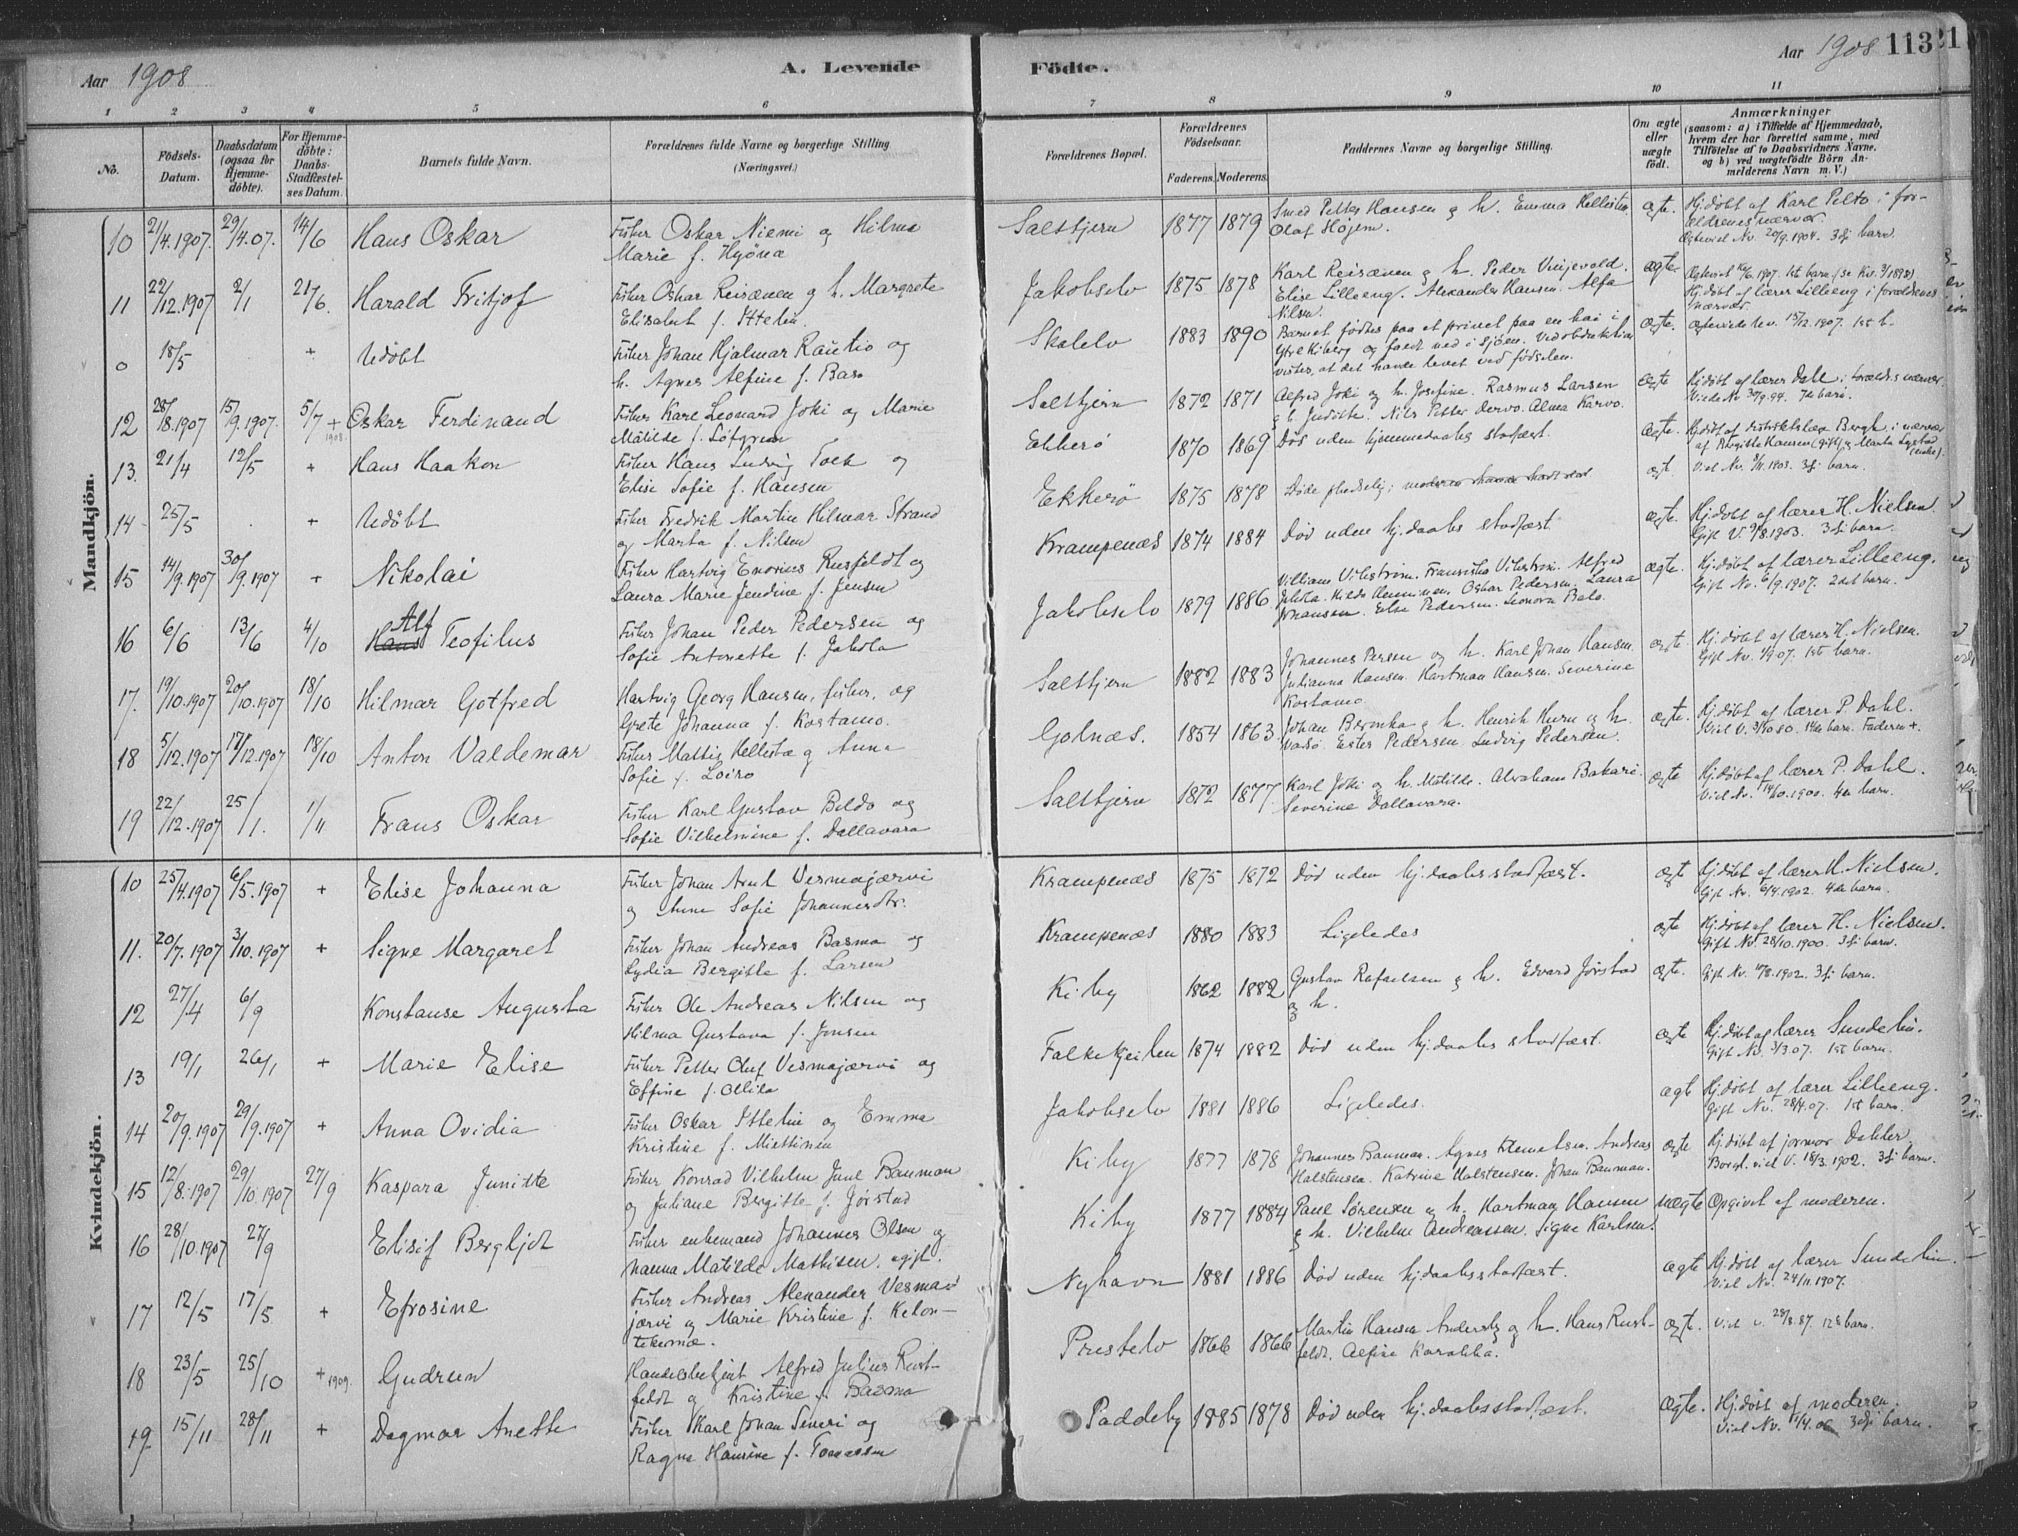 Aar 1908
A. Levende
Födte.
Aar 1908 113
1 2 3 4 5 6 7 8 9 10 11
No.
Födsels-
Datum.
Daabsdatum
(ogsaa for
Hjemme-
döbte).
For Hjemme-
döbte:
Daabs-
Stadfæstel-
ses Datum.
Barnets fulde Navn.
Forældrenes fulde Navne og borgerlige Stilling
(Næringsvei.)
Forældrenes Bopæl.
Forældrenes
Födselsaar.
Faderens. Moderens.
Faddernes Navne og borgerlige Stilling.
Om ægte
eller
uægte
födt.
Anmærkninger
(saasom: a) i Tilfælde af Hjemmedaab,
hvem der har forrettet samme, med
Tilföielse af to Daabsvidners Navne.
og b) ved uægtefödte Börn An-
melderens Navn m. V.)
Mandkjön.
10 21/4.1907. 29/4.07. 14/6 Hans Oskar
Fisker Oskar Niemi og Hilma
Marie f. Hyöna
Saltbjern 1877 1879
Smed Petter Hansen og h. Emma Hellestæ.
Olaf Höjem.
ægte.
Hj.döbt af Karl Pelto i for-
ældrenes nærvær.
Ægteviel Nv. 20/9.1904. 3di barn.
11 22/12.1907 2/1 21/6. Harald Fritjof
Fisker Oskar Reisænen og h. Margrete
Elisabet f. Ittelin
Jakobselv 1875 1878
Karl Reisænen og h. Peder Vinjevold.
Elise Lilleeng. Alexander Hansen. Alfa
Nilsen
ægte.
Hj.döbt af lærer Lilleeng i forældrenes
nærvær.
0 18/5 + Udöbt
Fisker Johan Hjalmar Rautio og
h. Agnes Alfine f. Basso
Skalelv 1883 1890
Barnet födtes paa et privet paa en kai i
Ytre Kiberg og faldt ned i sjöen. Ved obduktion
vistes, at det havde levet ved födselen.
ægte.
Ægteviede Nv. 15/12.1907. 1st b.
12 28/8.1907 15/9.1907. 5/7 + 1908. Oskar Ferdinand
Fisker Karl Leonard Joki og Marie
Matilde f. Löfgren
Saltbjern 1872 1871
Alfred Joki og h. Josefine. Rasmus Larsen
og h. Judithe. Nils Petter Dervo. Alma Karvo.
ægte
Hj.döbt af lærer Dahl i foreld.s nærvær.
Viede Nv 30/9.94. 7de barn.
13. 21/4 12/5 + Hans Haakon
Fisker Hans Ludvig Toch og
Elise Sofie f. Hansen
Ekkerö 1870 1869
Död uden hjemmedaabs stadfæst.
ægte.
Hj.döbt af distriktslæge Bergh i nærvær
af Birgitte Hansen (gift) og Marta Lystad
(enke).
14 25/5 + Udöbt
Fisker Fredrik Martin Hilmar Strand
og Marta f. Nilsen
Ekkerö 1875 1878
ægt.
Viel Nv. 8/11.1903. 3di barn.
15 14/9.1907 30/9.1907 + Nikolai
Fisker Hartvig Enovius Rusfeldt og
Laura Marie Jendine f. Jensen
Krampenæs 1874 1884
Död uden hj.daabs stadfæst.
ægte.
Hj.döbt af lærer H. Nielsen
Gift V. 9/8.1903. 3di barn.
16 6/6 13/6 4/10 Alf
Hans Teofilus
Fisker Johan Peder Pedersen og
Sofie Antonette f. Jakola
Jakobselv 1879 1886
Villiam Vikström. Franciska Vikström. Alfred
Jakola. Hilda Henninen. Oskar Pedersen. Laura
Johansen. Else Pedersen. Leonora Balo.
ægte.
Hj.döbt af lærer Lilleeng.
Gift Nv. 6/9.1907. 2det barn.
17. 19/10.1907 20/10.1907 18/10 Hilmar Gotfred
Hartvig Georg Hansen, fisker, og
Grete Johanna f. Kostamo.
Saltbjern 1882 1883
Johannes Persen og h. Karl Johan Hansen.
Julianna Hansen. Hartman Hansen. Severine
Kostamo
ægte.
Hj.döbt af lærer H. Nielsen.
18 5/12.1907 17/12.1907 18/10 Anton Valdemar
Fisker Mattis Hellestæ og Anna
Sofie f. Loiro
Golnæs. 1854 1863
Johan Beronka og h. Henrik Huru og h.
Vadsö. Ester Pedersen. Ludvig Pedersen.
ægte.
Hj.döbt af lærer P. Dahl.
19 22/12.1907 25/1. 1/11 Frans Oskar
Fisker Karl Gustav Beldo og
Sofie Vilhelmine f. Dallavara
Saltbjern 1872 1877
Karl Joki og h. Matilde. Abraham Bakari.
Severine Dallavara.
ægte
Hj.döbt af lærer P. Dahl.
Viel Nv. 14/10.1900. 4de barn.
Kvindekjön.
10 25/4.1907 6/5.1907 + Elise Johanna
Fisker Johan Arnt Vesmajærvi
og Anne Sofie Johannesdtr.
Krampenæs 1875 1872
Död uden hj.daabs stadfæst.
ægt
Hj.döbt af lærer H. Nielsen.
Gift Nv. 6/4.1902. 4de barn.
11. 20/7.1907 3/10.1907 + Signe Margaret
Fisker Johan Andreas Basma og
Lydia Bergitte f. Larsen
Krampenæs 1880 1883
Ligeledes
ægte
Hj.döbt af lærer H. Nielsen.
Gift Nv. 28/10.1900. 3di barn.
12 27/4 6/9 Konstanse Augusta
Fisker Ole Andreas Nilsen og
Hilma Gustava f. Jonsen
Kiby 1862 1882
Gustav Rafaelsen og h. Edvard Jörstad
og h.
ægte.
13 19/1 26/1 + Marie Elise
Fisker Petter Oluf Vesmajærvi og
Effine f. Ollila
Falkekjeilen 1874 1882
Död uden hj.daabs stadfæst.
ægte
Hj.döbt af lærer Sundelin.
Gift Nv. 3/3.07. 1st barn.
14 20/9.1907 29/9.1907 + Anna Ovidia
Fisker Oskar Ittelin og Emma
Kristine f. Miettinen
Jakobselv 1881 1886
Ligeledes.
ægt
Hj.döbt af lærer Lilleeng.
Gift Nv. 28/4.07. 1st barn.
15 12/8.1907 29/10.1907 27/9 Kaspara Junitte
Fisker Konrad Vilhelm Juul Bauman
og Juliane Bergitte f. Jörstad
Kiby 1877 1878
Johannes Bauman. Agnes Klemetsen. Andreas
Halstensen. Katrine Halstensen. Johan Bauman.
ægte
Hj.döbt af jormor Dakker.
Borgl. viel V. 18/3.1902. 3di barn.
16 28/10.1907 27/9 Elisif Bergljot
Fisker enkemand Johannes Olsen og
Nanna Matilde Mathisen, ugift.
Kiby 1877 1884
Paul Sörensen og h. Hartman Hansen
og h. Vilhelm Andreassen. Signe Karlsen.
uægte
Opgivet af moderen.
17 12/5 17/5 + Efrosine
Fisker Andreas Alexander Vesma-
jærvi og Marie Kristine f. Keton-
tekemæ.
Nyhavn 1881 1886
Död uden hj.daabsstadfæst.
ægte
Hj.döbt af lærer Sundelin.
Viel Nv. 24/11.1907.
18 23/5 25/10 + 1909. Gudrun
Handelsbetjent Alfred Julius Rust-
feldt og Kristine f. Basma
Prestelv 1866 1866
Martin Hansen Andersby og h. Hans Rust-
feldt. Alfine Karakka.
ægte.
Viel V. 28/8.87. 12te barn.
19. 15/11 28/11 + Dagmar Anette
Fisker Karl Johan Severi og
Ragna Hansine f. Tomassen
Paddeby 1885 1878
Död uden hj.daabsstadfæst.
ægte.
Hj.döbt af moderen.